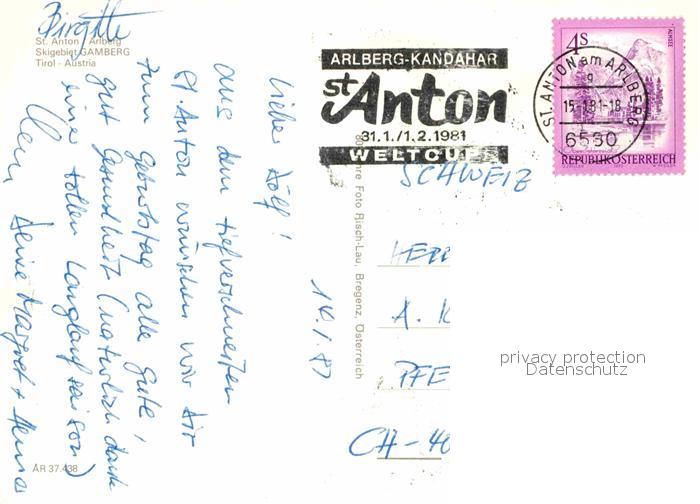 Birgitte
St. Anton / Arlberg
Skigebiet GAMBERG
Tirol - Austria
Lieber Rolf!
aus dem tiefverschneiten
St. Anton wünschen wir Dir
zum Geburtstag alle gute,
gut Gesundheit (natürlich auch
eine tollen Langlaufsaison)
Deine Margret + Heinz
14.1.81
ÄR 37.438
Foto Risch-Lau, Bregenz, Österreich
ARLBERG-KANDAHAR
St Anton
31.1./1.2.1981
WELTCUP
4S
ST. ANTON am ARLBERG
15.-1.81-18
6580
REPUBLIK ÖSTERREICH
SCHWEIZ
HERR
A. K
PFE
CH-40
privacy protection
Datenschutz